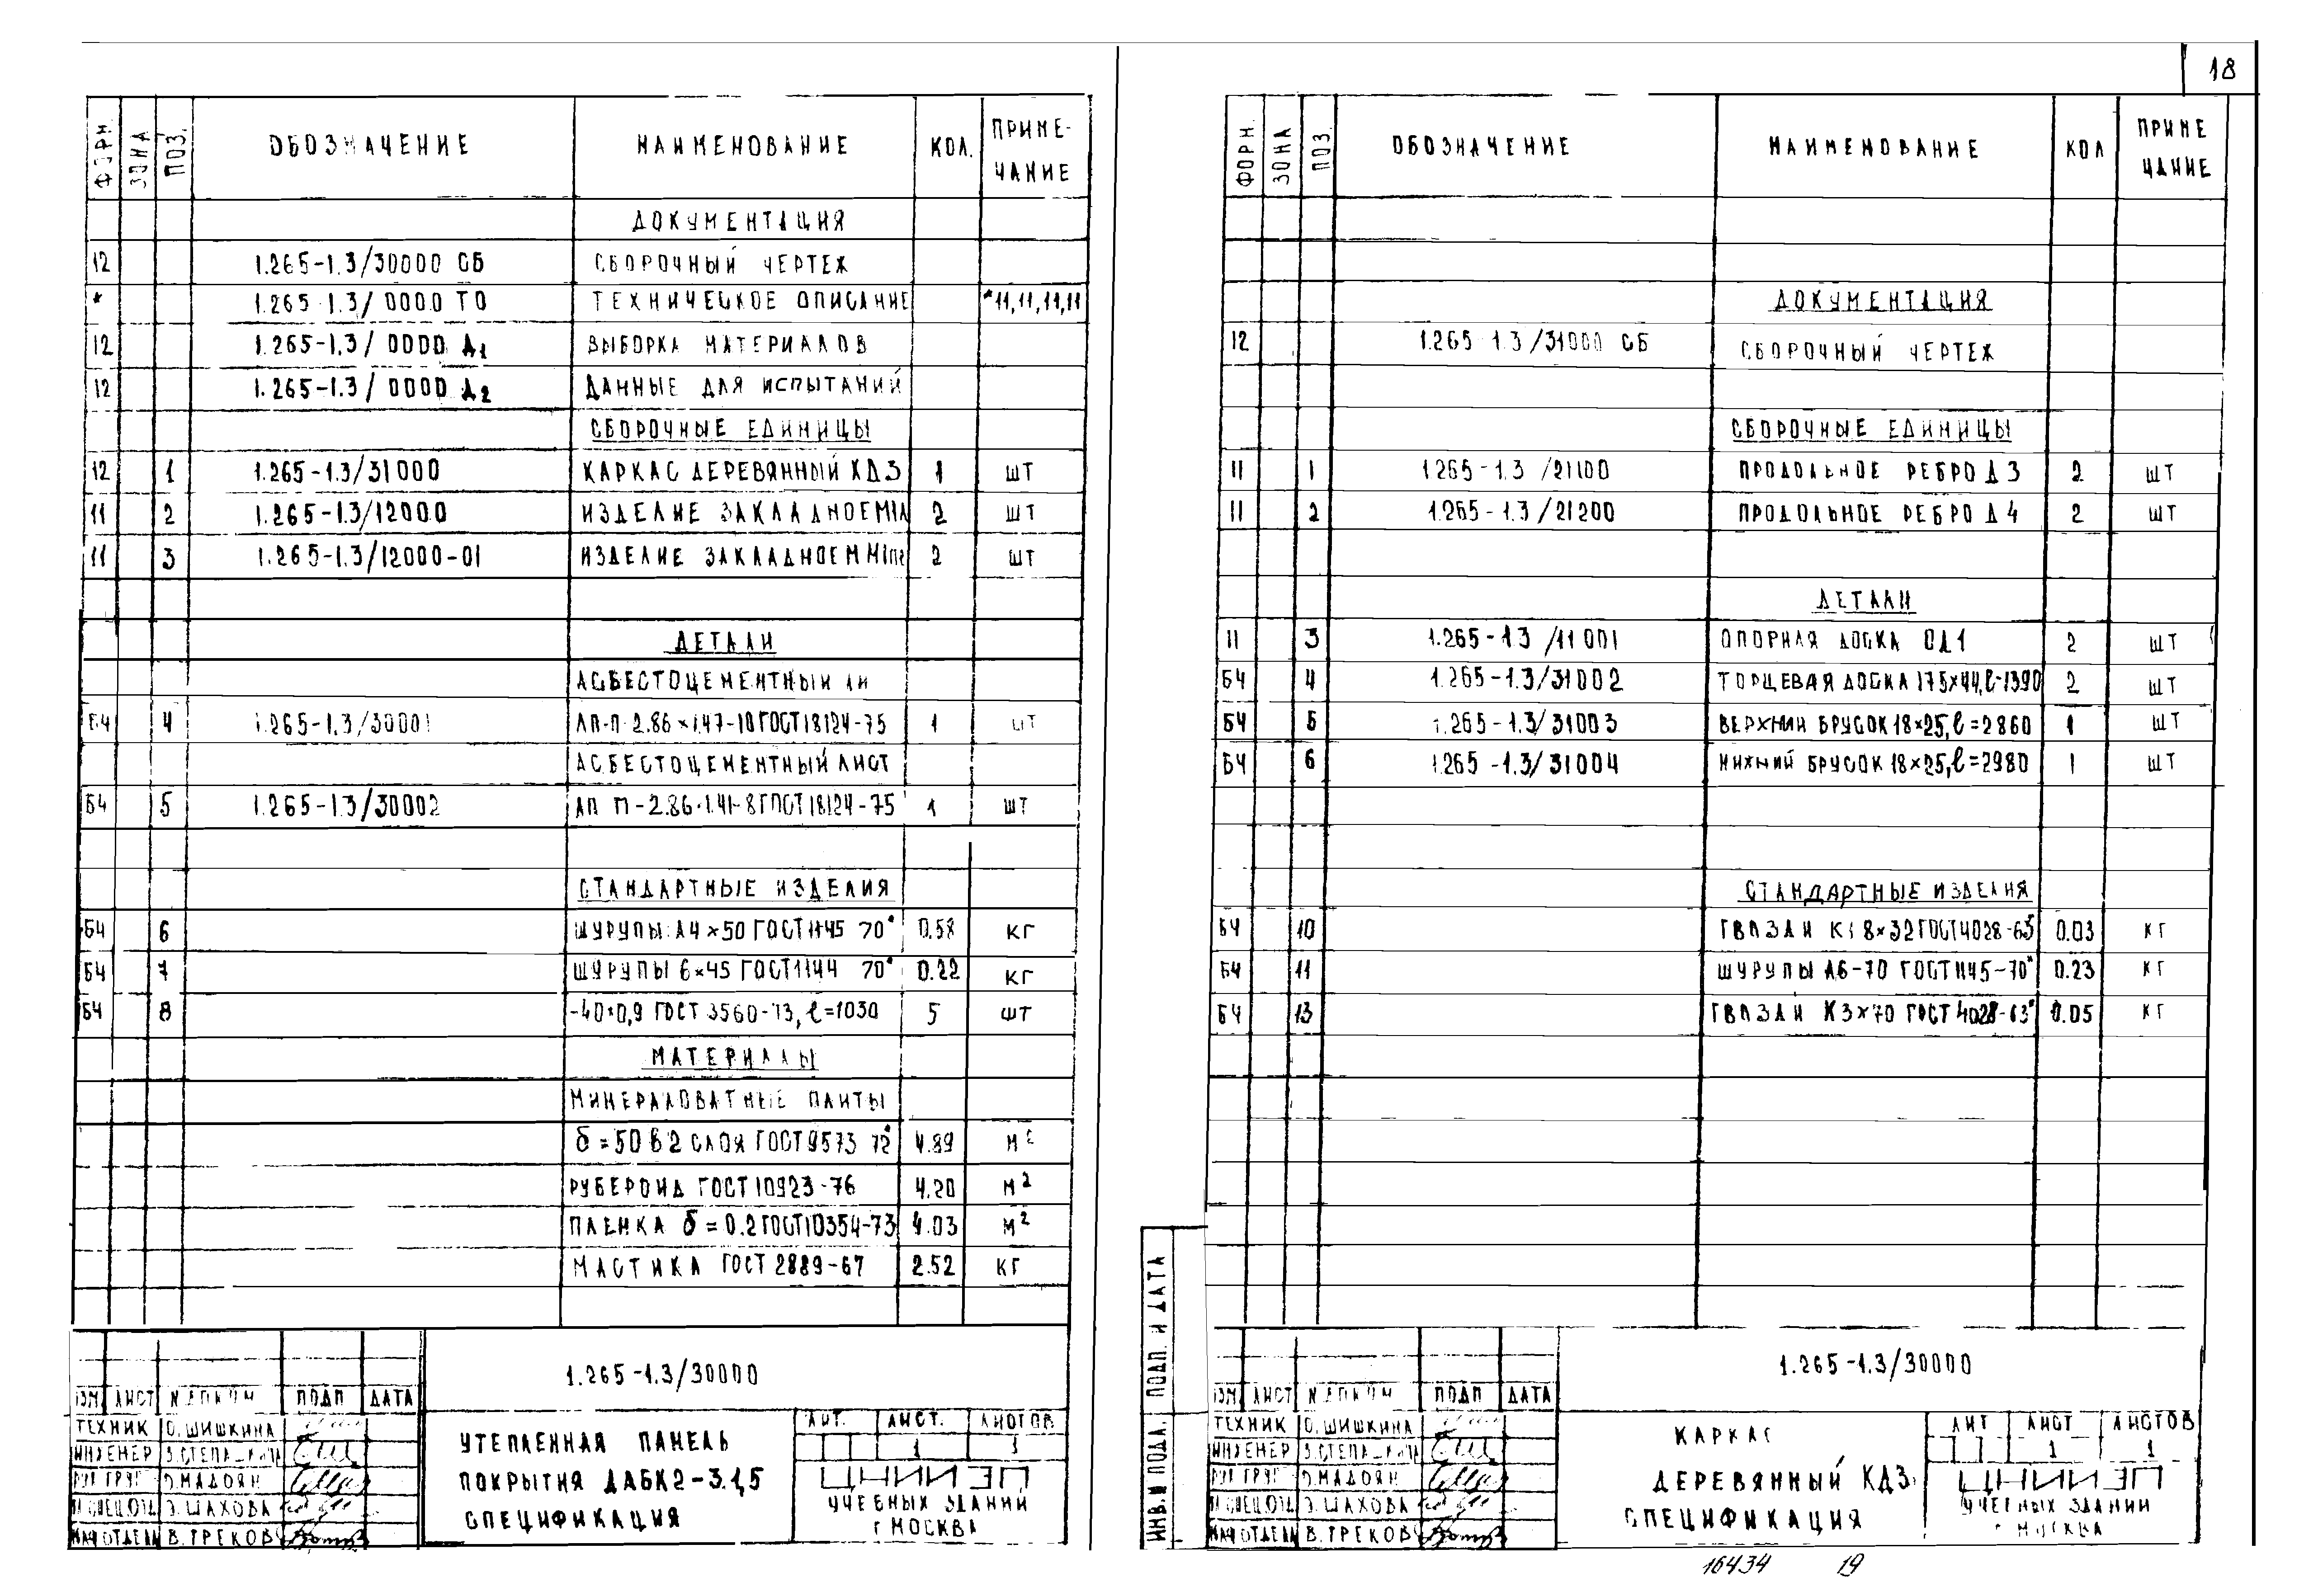 18
ФОРМ. ЗОНА ПОЗ. ОБОЗНАЧЕНИЕ НАИМЕНОВАНИЕ КОЛ. ПРИМЕ-
ЧАНИЕ
ДОКУМЕНТАЦИЯ
12 1.265-1.3/30000 СБ СБОРОЧНЫЙ ЧЕРТЕЖ
* 1.265-1.3/ 0000 ТО ТЕХНИЧЕСКОЕ ОПИСАНИЕ *11,11,11,11
12 1.265-1.3/ 0000 Д1 ВЫБОРКА МАТЕРИАЛОВ
12 1.265-1.3/ 0000 Д2 ДАННЫЕ ДЛЯ ИСПЫТАНИЙ
СБОРОЧНЫЕ ЕДИНИЦЫ
12 1 1.265-1.3/31000 КАРКАС ДЕРЕВЯННЫЙ КД3 1 ШТ
11 2 1.265-1.3/12000 ИЗДЕЛИЕ ЗАКЛАДНОЕ 2 ШТ
11 3 1.265-1.3/12000-01 ИЗДЕЛИЕ ЗАКЛАДНОЕ 2 ШТ
ДЕТАЛИ
АСБЕСТОЦЕМЕНТНЫЙ
БЧ 4 1.265-1.3/30001 ЛП-П-2.86×1.47-10 ГОСТ 18124-75 1 ШТ
АСБЕСТОЦЕМЕНТНЫЙ ЛИСТ
БЧ 5 1.265-1.3/30002 ЛП П-2.86·1.41-8 ГОСТ 18124-75 1 ШТ
СТАНДАРТНЫЕ ИЗДЕЛИЯ
БЧ 6 ШУРУПЫ А4×50 ГОСТ 1145 70* 0.58 КГ
БЧ 7 ШУРУПЫ 6×45 ГОСТ 1144 70* 0.22 КГ
БЧ 8 -40×0,9 ГОСТ 3560-73, ℓ=1030 5 ШТ
МАТЕРИАЛЫ
МИНЕРАЛОВАТНЫЕ ПЛИТЫ
δ=50 В 2 СЛОЯ ГОСТ 9573 72* 4.89 М²
РУБЕРОИД ГОСТ 10923-76 4.20 М²
ПЛЕНКА δ=0.2 ГОСТ 10354-73 4.03 М²
МАСТИКА ГОСТ 2889-67 2.52 КГ
1.265-1.3/30000
ИЗМ ЛИСТ N ДОКУМ ПОДП ДАТА
ТЕХНИК О.ШИШКИНА
ИНЖЕНЕР
РУК ГРУП Э.МАДОЯН
Э.ШАХОВА
НАЧ ОТДЕЛА В.ГРЕКОВ
УТЕПЛЕННАЯ ПАНЕЛЬ
ПОКРЫТИЯ ДАБК2-3.1,5
СПЕЦИФИКАЦИЯ
ЛИТ. ЛИСТ. ЛИСТОВ
1 1
ЦНИИЭП
УЧЕБНЫХ ЗДАНИЙ
Г МОСКВА
ФОРМ. ЗОНА ПОЗ. ОБОЗНАЧЕНИЕ НАИМЕНОВАНИЕ КОЛ ПРИМЕ
ЧАНИЕ
ДОКУМЕНТАЦИЯ
12 1.265-1.3/31000 СБ СБОРОЧНЫЙ ЧЕРТЕЖ
СБОРОЧНЫЕ ЕДИНИЦЫ
11 1 1.265-1.3 /21100 ПРОДОЛЬНОЕ РЕБРО Д3 2 ШТ
11 2 1.265-1.3/21200 ПРОДОЛЬНОЕ РЕБРО Д4 2 ШТ
ДЕТАЛИ
11 3 1.265-1.3 /11001 ОПОРНАЯ ДОСКА ОД1 2 ШТ
БЧ 4 1.265-1.3/31002 ТОРЦЕВАЯ ДОСКА 175×44, ℓ-1390 2 ШТ
БЧ 5 1.265-1.3/31003 ВЕРХНИЙ БРУСОК 18×25, ℓ=2860 1 ШТ
БЧ 6 1.265-1.3/31004 НИЖНИЙ БРУСОК 18×25, ℓ=2980 1 ШТ
СТАНДАРТНЫЕ ИЗДЕЛИЯ
БЧ 10 ГВОЗДИ К1 8×32 ГОСТ 4028-63* 0.03 КГ
БЧ 11 ШУРУПЫ А6-70 ГОСТ 1145-70* 0.23 КГ
БЧ 13 ГВОЗДИ К3×70 ГОСТ 4028-63* 0.05 КГ
ИНВ.N ПОДЛ. ПОДП. И ДАТА
1.265-1.3/30000
ИЗМ ЛИСТ N ДОКУМ ПОДП ДАТА
ТЕХНИК О.ШИШКИНА
ИНЖЕНЕР
РУК ГРУП Э.МАДОЯН
Э.ШАХОВА
НАЧ ОТДЕЛА В.ГРЕКОВ
КАРКАС
ДЕРЕВЯННЫЙ КД3
СПЕЦИФИКАЦИЯ
ЛИТ ЛИСТ ЛИСТОВ
1 1
ЦНИИЭП
УЧЕБНЫХ ЗДАНИЙ
Г МОСКВА
16434 19